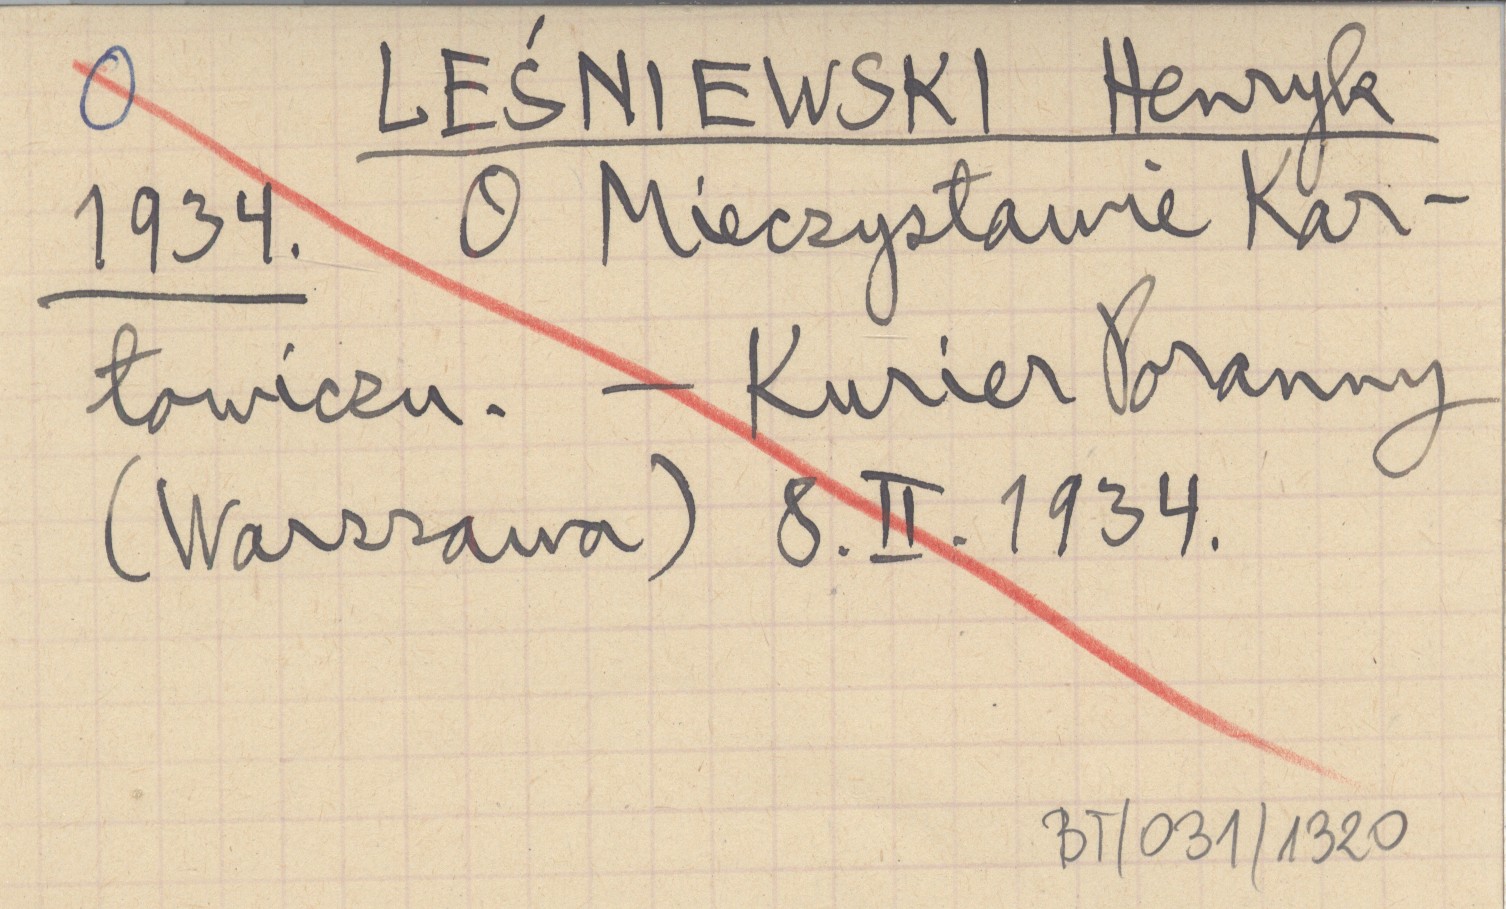 O LEŚNIEWSKI Henryk
1934. O Mieczysławie Kar-
łowiczu. — Kurier Poranny
(Warszawa) 8.II.1934.
BT/031/1320